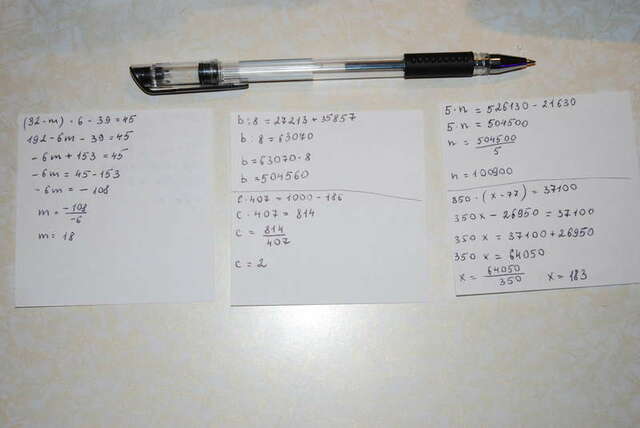 (32-m)·6-39=45
192-6m-39=45
-6m+153=45
-6m=45-153
-6m=-108
m=-108/-6
m=18
b:8=27213+35857
b:8=63070
b=63070·8
b=504560
c·407=1000-186
c·407=814
c=814/407
c=2
5·n=526130-21630
5·n=504500
n=504500/5
n=100900
350·(x-77)=37100
350x-26950=37100
350x=37100+26950
350x=64050
x=64050/350 x=183